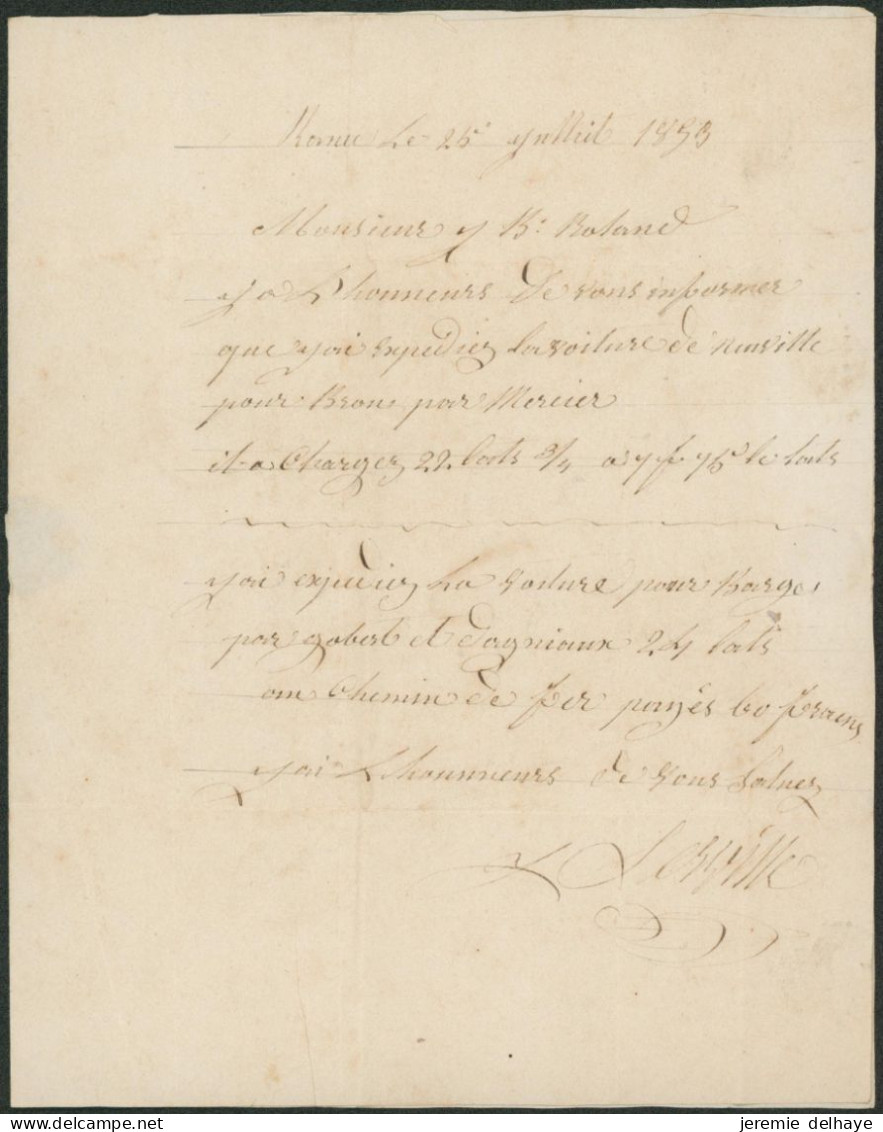 Le 25 Juillet 1853
Monsieur J B: Roland
J a L'honneurs De vous informer
que j'ai expediez la voiture de neuville
pour Bron par Mercier
il a Chargez 22 lats 3/4 a 7 f 75 le lats
j'ai expediez La voiture pour
par gobert et Dagniaux 24 lats
au Chemin de fer payés 60 francs
j'ai L'honnneurs de vous Saluez
www.delcampe.net
jeremie delhaye